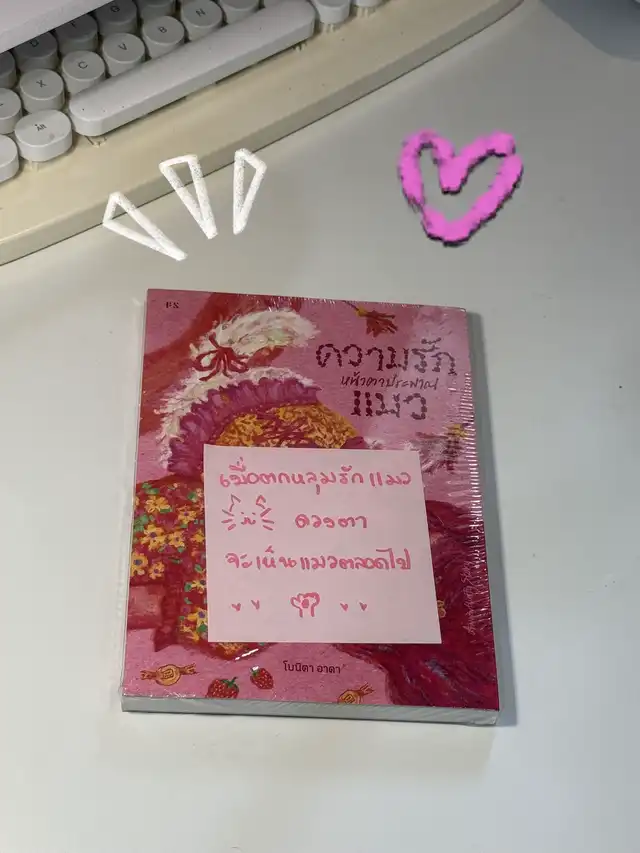 ความรัก
หน้าตาประหาณ
แมว
เมื่อตกหลุมรักแมว
ดวงตา
จะเห็นแมวตลอดไป
โบนิตา อาดา
Alt